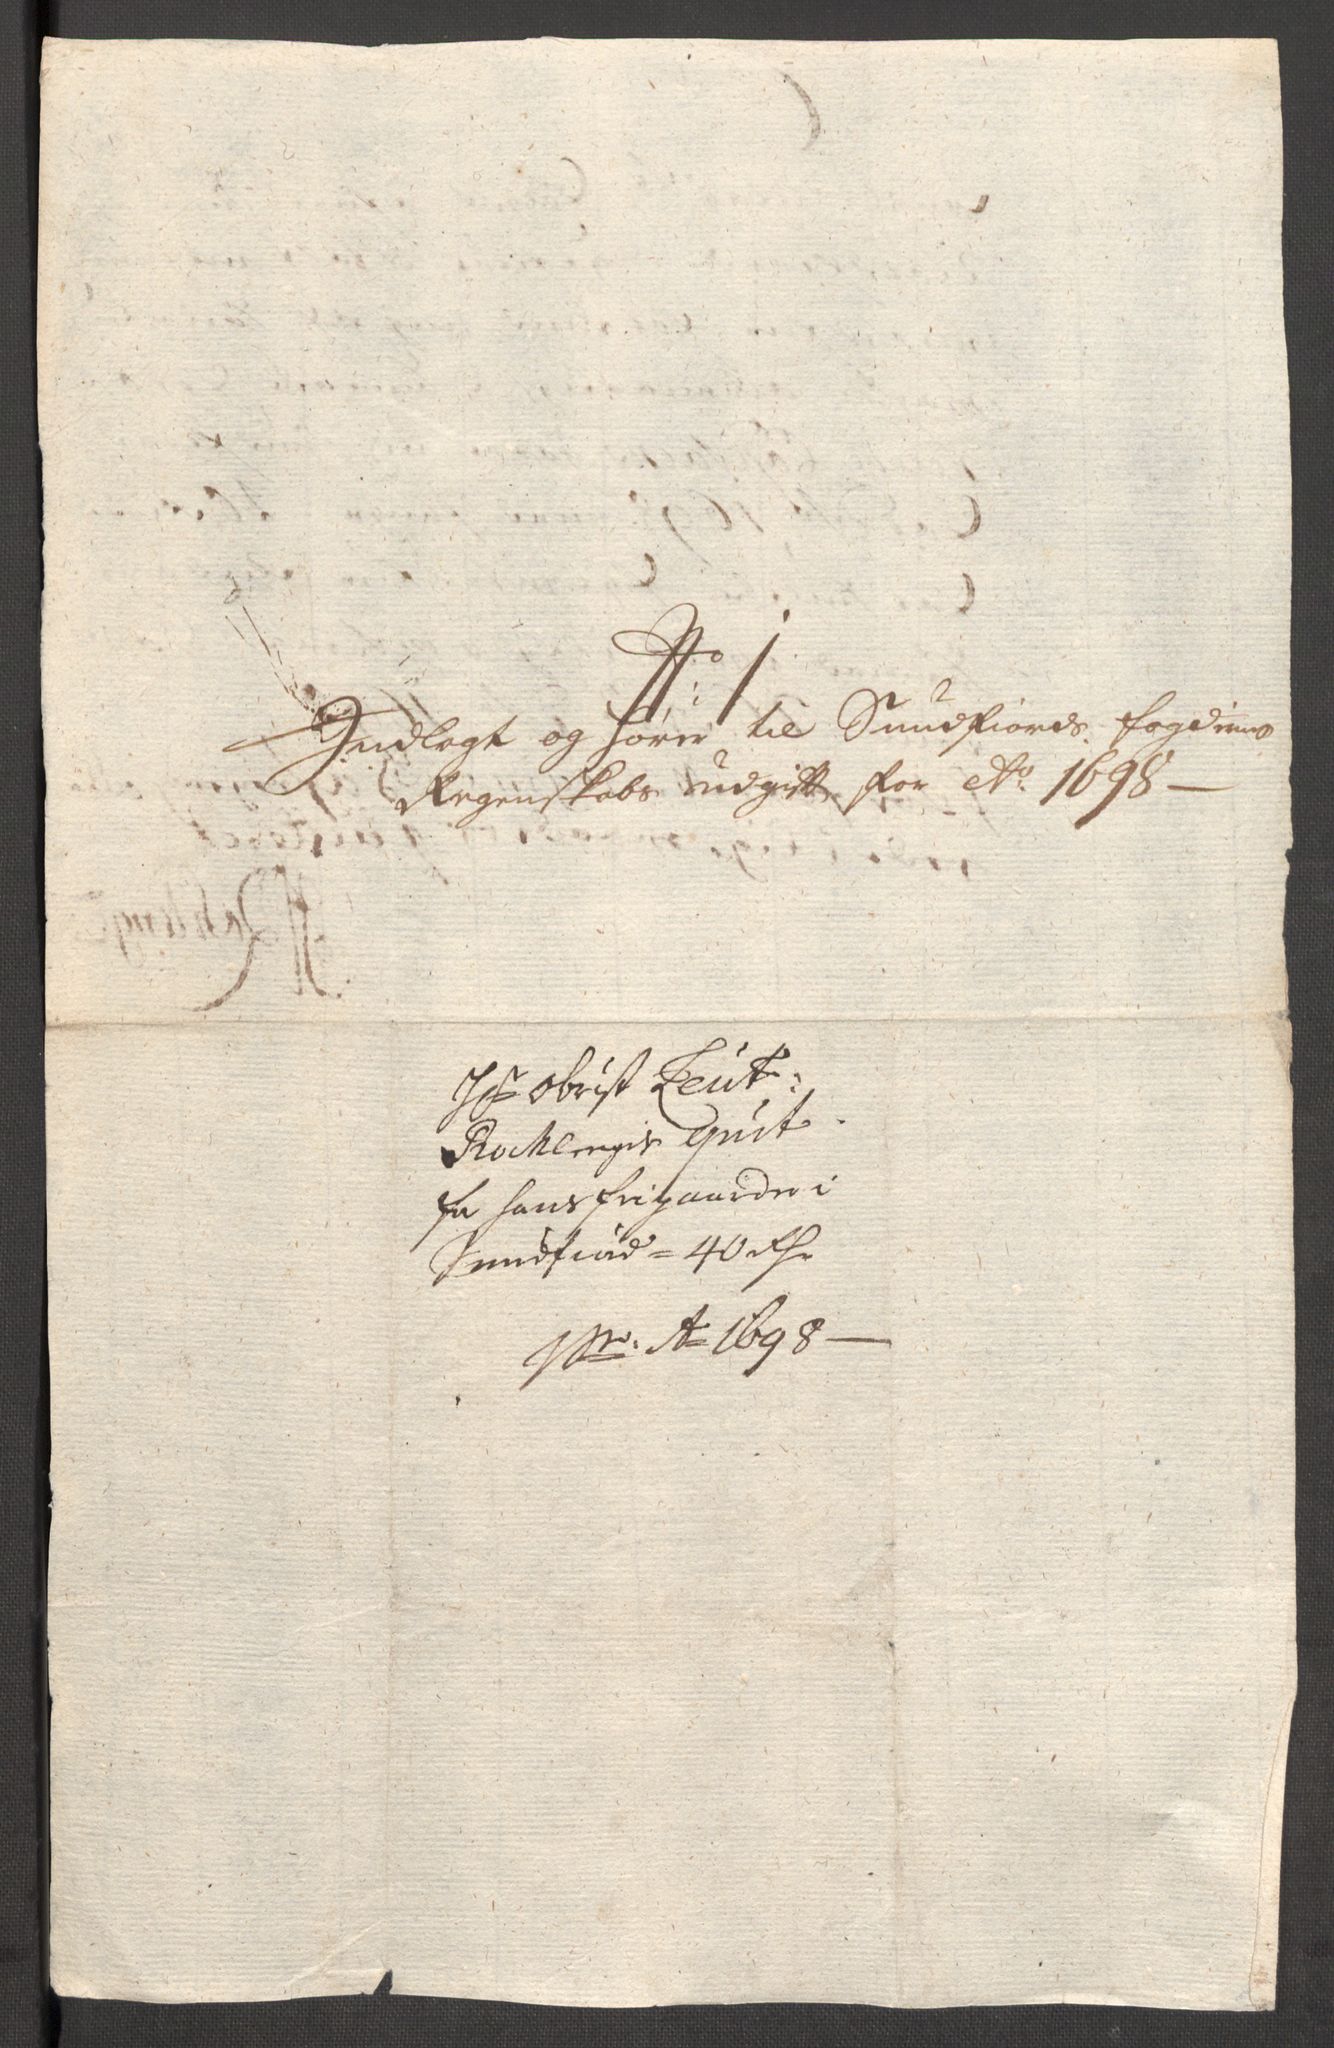 No. 1
Indlegt og hører til Sundfiords fogderies
Regenskabs udgift for Ao. 1698 —
Hr Obrist Leut:
Rocklengis Quit.
for hans frigaarder i
Sundfiord = 40 Rdr
Pro. Ao 1698 —